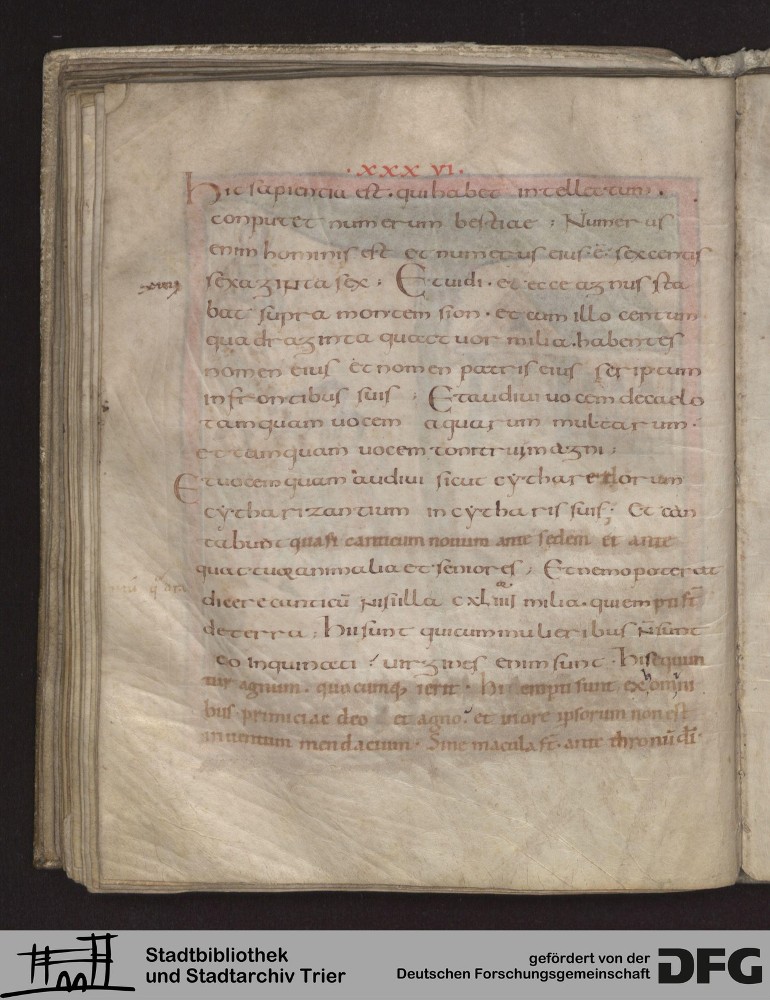 · XXX VI ·
Hic sapientia est · qui habet intellectum ·
conputet numerum bestiae ; Numerus
enim hominis est et numerus eius · ē · sexcentis
sexaginta sex ; Et uidi · et ecce agnus sta
bat supra montem sion · et cum illo centum
quadraginta quattuor milia · habentes
nomen eius et nomen patris eius scriptum
in frontibus suis ; Et audiui uocem de caelo
tamquam uocem aquarum multarum ·
et tamquam uocem tonitrui magni ;
Et uocem quam audiui sicut cytharedorum
cytharizantium in cytharis suis ; Et can
tabunt quasi canticum nouum ante sedem et ante
quattuor animalia et seniores ; Et nemo poterat
dicere canticū nisi illa cxliiii milia · qui empti st̄
de terra ; Hii sunt qui cum mulieribus n̄ sunt
coinquinati ; uirgines enim sunt · Hi sequun
tur agnum · quocumq; ierit · Hi empti sunt ex omni
bus primiciae deo et agno · et in ore ipsorum non est
inuentum mendacium · Sine macula st̄ · ante thronū dī ·
Stadtbibliothek
und Stadtarchiv Trier
gefördert von der
Deutschen Forschungsgemeinschaft
DFG